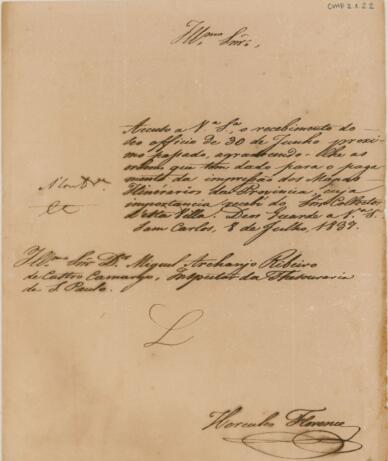 CMF 2.1.22
Ill.mo Snr.,
Accuso a V.a S.a, o recebimento do
seo officio de 30 de Junho proxi-
mo passado, agradecendo-lhe as
ordens que tem dado para o paga-
mento da impressão dos Mappas
Itinerarios da Provincia, cuja
importancia recebi do Snr. Collector
desta Villa. Deos Guarde a V.a S.a
Sam Carlos, 8 de Julho, 1837.
Ill.mo Snr. D.r Miguel Archanjo Ribeiro
de Castro Camargo, Inspector da Thesouraria
de S. Paulo.
Hercules Florence